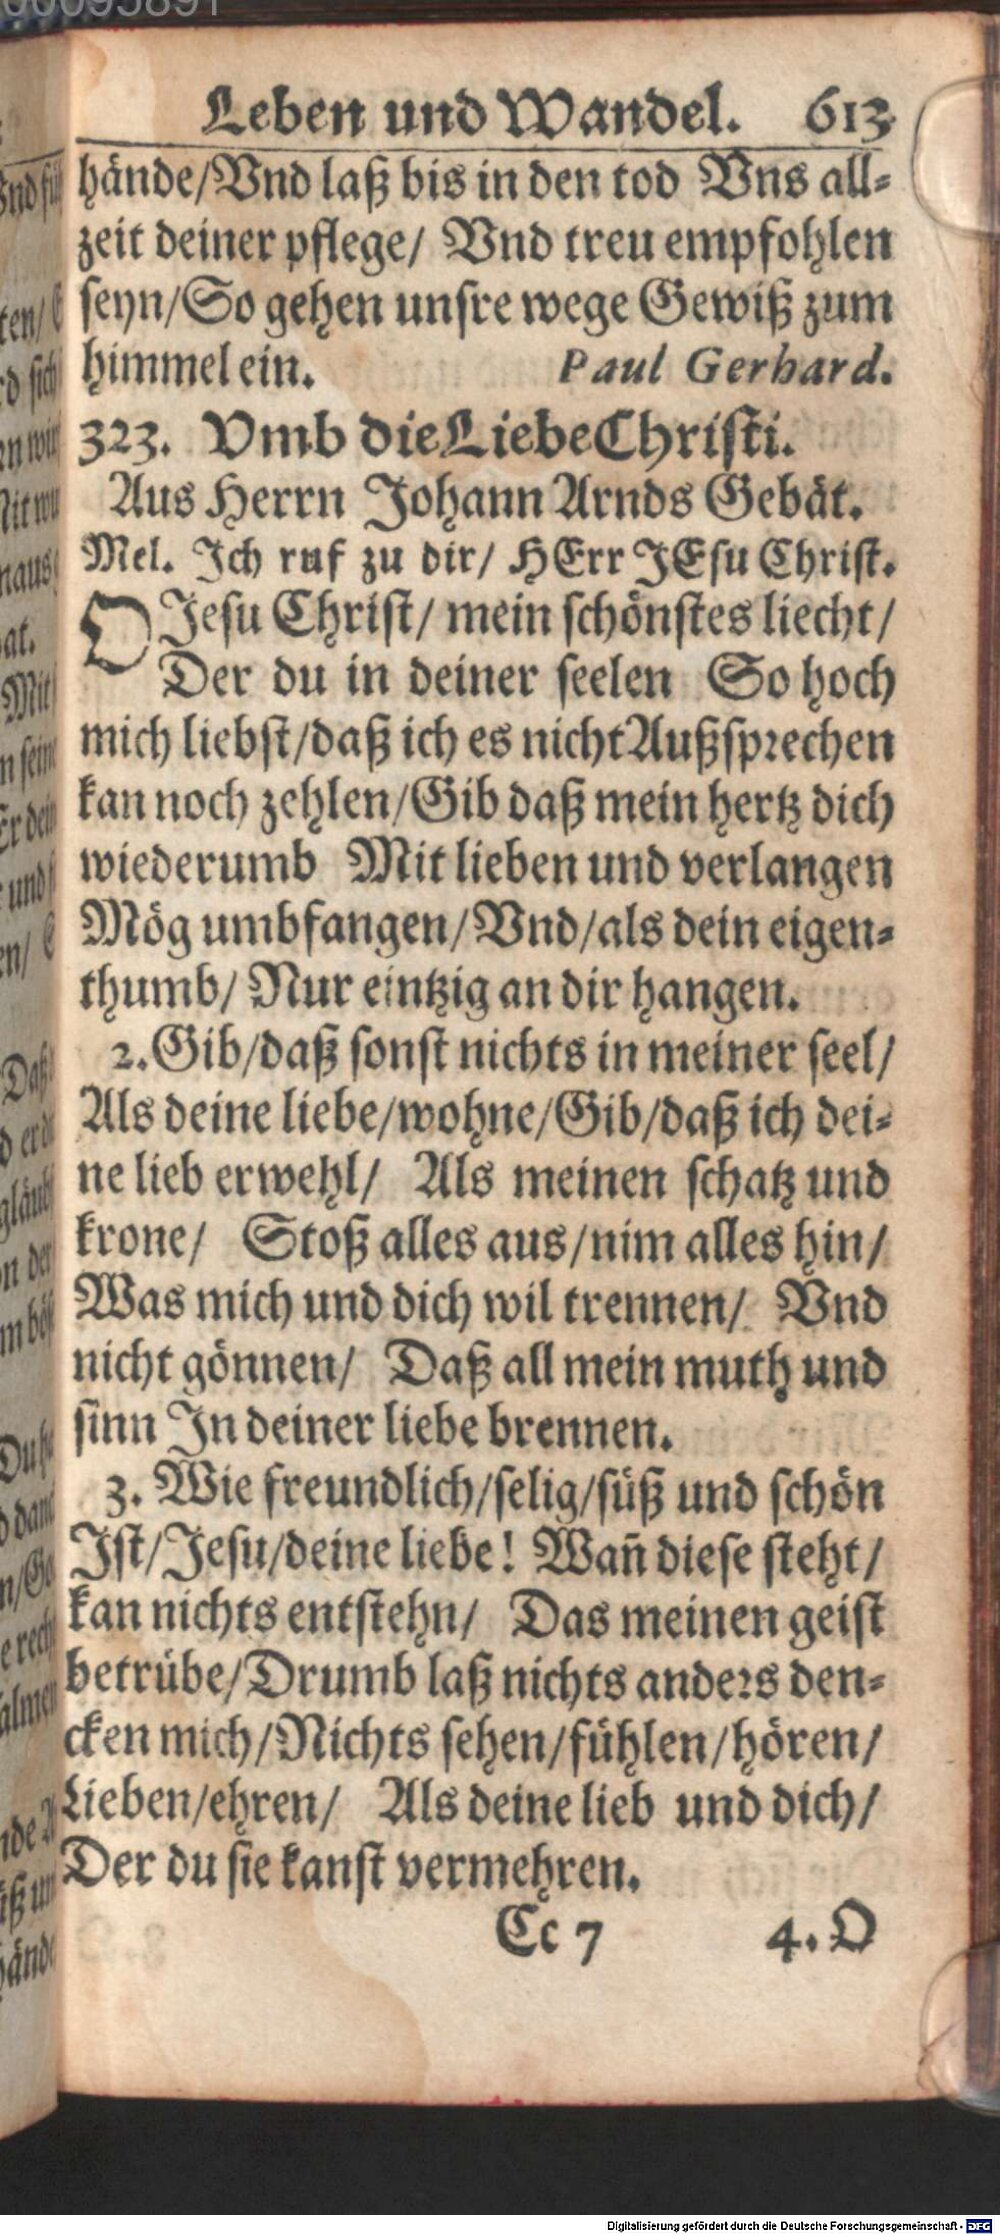 Leben und Wandel. 613
hände/Vnd laß bis in den tod Vns all-
zeit deiner pflege/ Vnd treu empfohlen
seyn/So gehen unsre wege Gewiß zum
himmel ein. Paul Gerhard.
323. Vmb die Liebe Christi.
Aus Herrn Johann Arnds Gebät.
Mel. Ich ruf zu dir/ HErr JEsu Christ.
O Jesu Christ/ mein schönstes liecht/
Der du in deiner seelen So hoch
mich liebst/daß ich es nicht Außsprechen
kan noch zehlen/Gib daß mein hertz dich
wiederumb Mit lieben und verlangen
Mög umbfangen/Vnd/als dein eigen-
thumb/ Nur eintzig an dir hangen.
2. Gib/daß sonst nichts in meiner seel/
Als deine liebe/wohne/Gib/daß ich dei-
ne lieb erwehl/ Als meinen schatz und
krone/ Stoß alles aus/nim alles hin/
Was mich und dich wil trennen/ Vnd
nicht gönnen/ Daß all mein muth und
sinn In deiner liebe brennen.
3. Wie freundlich/selig/süß und schön
Ist/Jesu/deine liebe! Wañ diese steht/
kan nichts entstehn/ Das meinen geist
betrübe/Drumb laß nichts anders den-
cken mich/Nichts sehen/fühlen/hören/
Lieben/ehren/ Als deine lieb und dich/
Der du sie kanst vermehren.
Cc 7 4. O
Digitalisierung gefördert durch die Deutsche Forschungsgemeinschaft - DFG